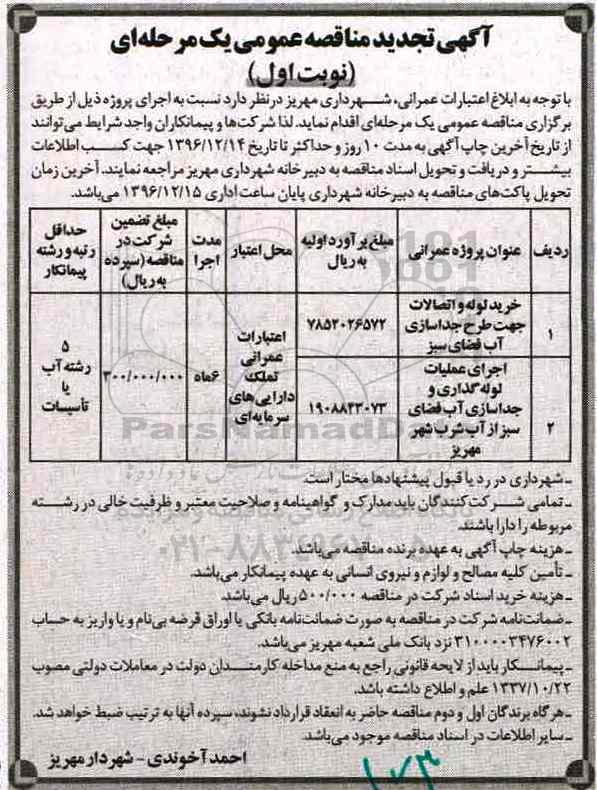 آگهی تجدید مناقصه عمومی یک مرحله‌ای
(نوبت اول)
با توجه به ابلاغ اعتبارات عمرانی، شهرداری مهریز درنظر دارد نسبت به اجرای پروژه ذیل از طریق
برگزاری مناقصه عمومی یک مرحله‌ای اقدام نماید. لذا شرکت‌ها و پیمانکاران واجد شرایط می‌توانند
از تاریخ آخرین چاپ آگهی به مدت ۱۰ روز و حداکثر تا تاریخ ۱۳۹۶/۱۲/۱۴ جهت کسب اطلاعات
بیشتر و دریافت و تحویل اسناد مناقصه به دبیرخانه شهرداری مهریز مراجعه نمایند. آخرین زمان
تحویل پاکت‌های مناقصه به دبیرخانه شهرداری پایان ساعت اداری ۱۳۹۶/۱۲/۱۵ می‌باشد.
ردیف
عنوان پروژه عمرانی
مبلغ برآورد اولیه
به ریال
محل اعتبار
مدت
اجرا
مبلغ تضمین
شرکت در
مناقصه (سپرده
به ریال)
حداقل
رتبه و رشته
پیمانکار
۱
خرید لوله و اتصالات
جهت طرح جداسازی
آب فضای سبز
۷۸۵۲۰۲۶۵۷۲
اعتبارات
عمرانی
تملک
دارایی‌های
سرمایه‌ای
۶ماه
۳۰۰/۰۰۰/۰۰۰
۵
رشته آب
یا
تأسیسات
۲
اجرای عملیات
لوله گذاری و
جداسازی آب فضای
سبز از آب شرب شهر
مهریز
۱۹۰۸۸۴۳۰۷۳
ـ شهرداری در رد یا قبول پیشنهادها مختار است.
ـ تمامی شرکت‌کنندگان باید مدارک و گواهینامه و صلاحیت معتبر و ظرفیت خالی در رشته
مربوطه را دارا باشند.
ـ هزینه چاپ آگهی به عهده برنده مناقصه می‌باشد.
ـ تأمین کلیه مصالح و لوازم و نیروی انسانی به عهده پیمانکار می‌باشد.
ـ هزینه خرید اسناد شرکت در مناقصه ۵۰۰/۰۰۰ ریال می‌باشد.
ـ ضمانت‌نامه شرکت در مناقصه به صورت ضمانت‌نامه بانکی یا اوراق قرضه بی‌نام و یا واریز به حساب
۳۱۰۰۰۰۳۴۷۶۰۰۲ نزد بانک ملی شعبه مهریز می‌باشد.
ـ پیمانکار باید از لایحه قانونی راجع به منع مداخله کارمندان دولت در معاملات دولتی مصوب
۱۳۳۷/۱۰/۲۲ علم و اطلاع داشته باشد.
ـ هرگاه برندگان اول و دوم مناقصه حاضر به انعقاد قرارداد نشوند، سپرده آنها به ترتیب ضبط خواهد شد.
ـ سایر اطلاعات در اسناد مناقصه موجود می‌باشد.
احمد آخوندی - شهردار مهریز
۱۷۳